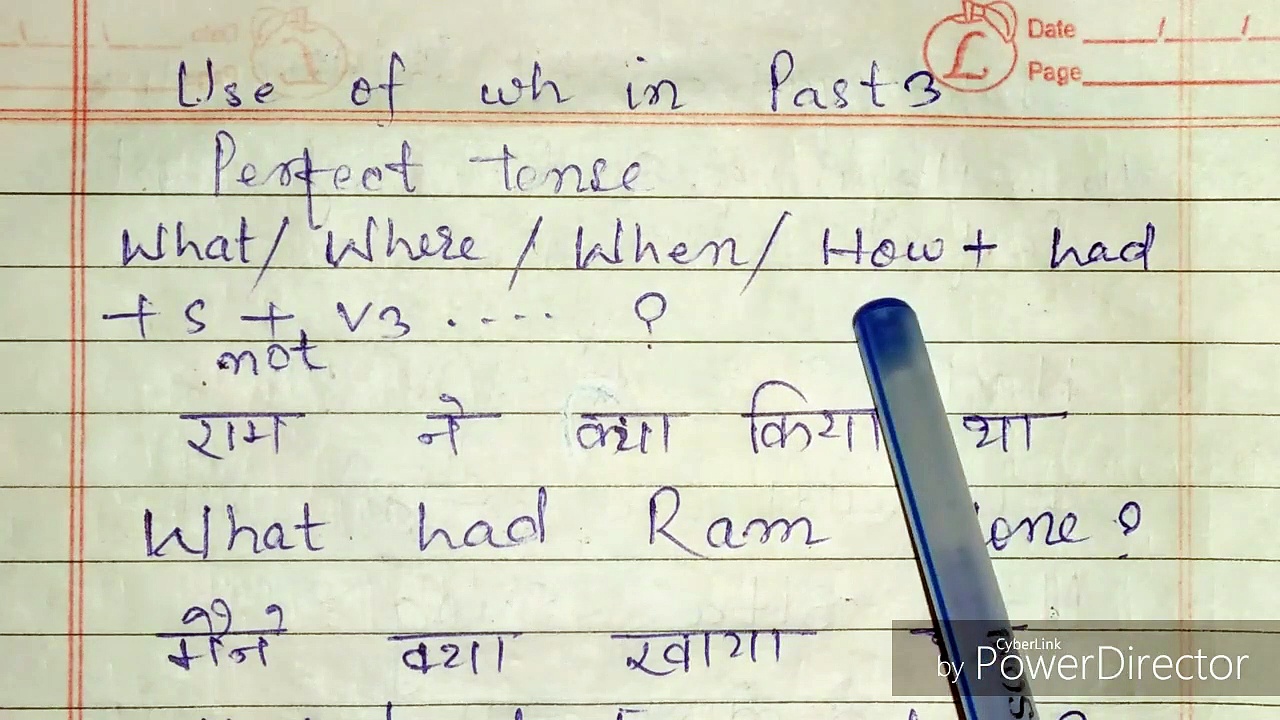 Date ___/___/
Page
Use of wh in Past3
Perfect tense
What/ Where / When/ How + had
+ S + V3 ..... ?
not
राम ने क्या किया था
What had Ram one?
मैंने क्या खाया
CyberLink
by PowerDirector